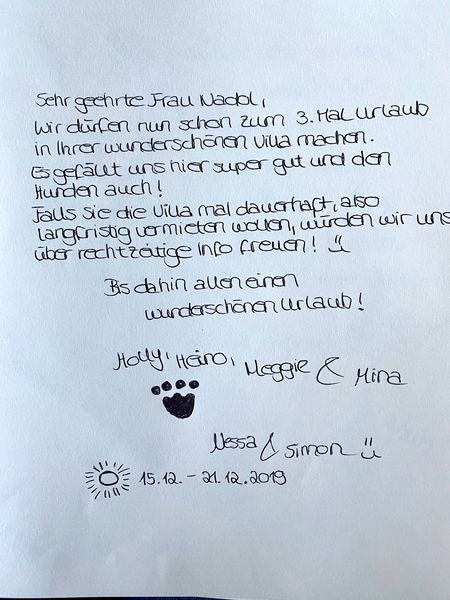 Sehr geehrte Frau Nadol,
wir dürfen nun schon zum 3. Mal Urlaub
in Ihrer wunderschönen Villa machen.
Es gefällt uns hier super gut und den
Hunden auch!
Falls sie die Villa mal dauerhaft, also
langfristig vermieten wollen, würden wir uns
über rechtzeitige Info freuen! :)
Bis dahin allen einen
wunderschönen Urlaub!
Holly, Heino, Meggie & Mina
Nessa & Simon :)
15.12. - 21.12.2019